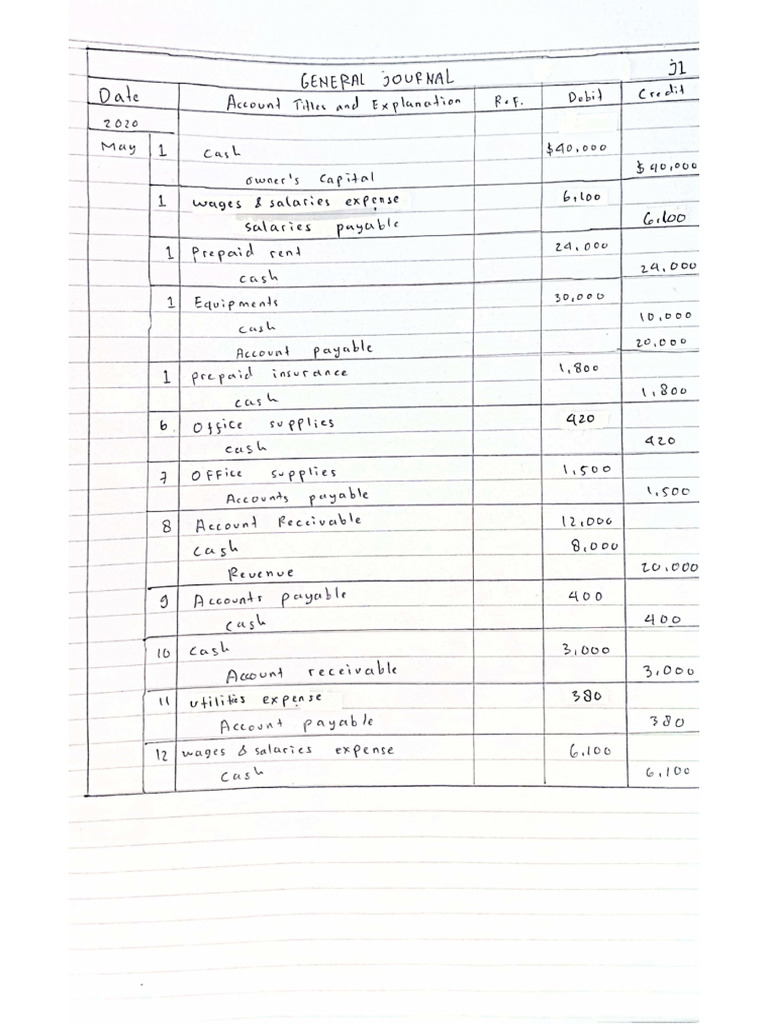 GENERAL JOURNAL J1
Date Account Titles and Explanation Ref. Debit Credit
2020
May 1 Cash $40,000
owner's Capital $40,000
1 wages & salaries expense 6,100
salaries payable 6,100
1 Prepaid rent 24,000
cash 24,000
1 Equipments 30,000
cash 10,000
Account payable 20,000
1 prepaid insurance 1,800
cash 1,800
6 Office supplies 420
cash 420
7 Office supplies 1,500
Accounts payable 1,500
8 Account Receivable 12,000
cash 8,000
Revenue 20,000
9 Accounts payable 400
cash 400
10 cash 3,000
Account receivable 3,000
11 utilities expense 380
Account payable 380
12 wages & salaries expense 6,100
Cash 6,100